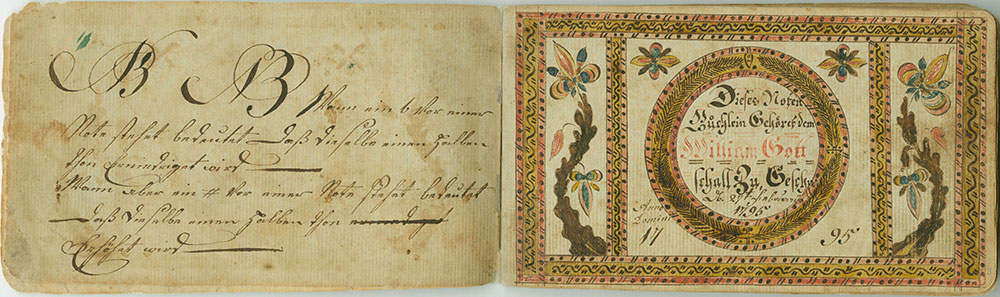 NB NB Wann ein b vor einer
Note stehet bedeutet daß dieselbe einen halben
thon erniedriget wird
Wann aber ein # vor einer Note stehet bedeutet
daß dieselbe einen halben thon
Erhöhet wird
Dieses Noten
Büchlein Gehöret dem
William Gott
schall Zu Geschr
1795
Anno
Domini
17 95